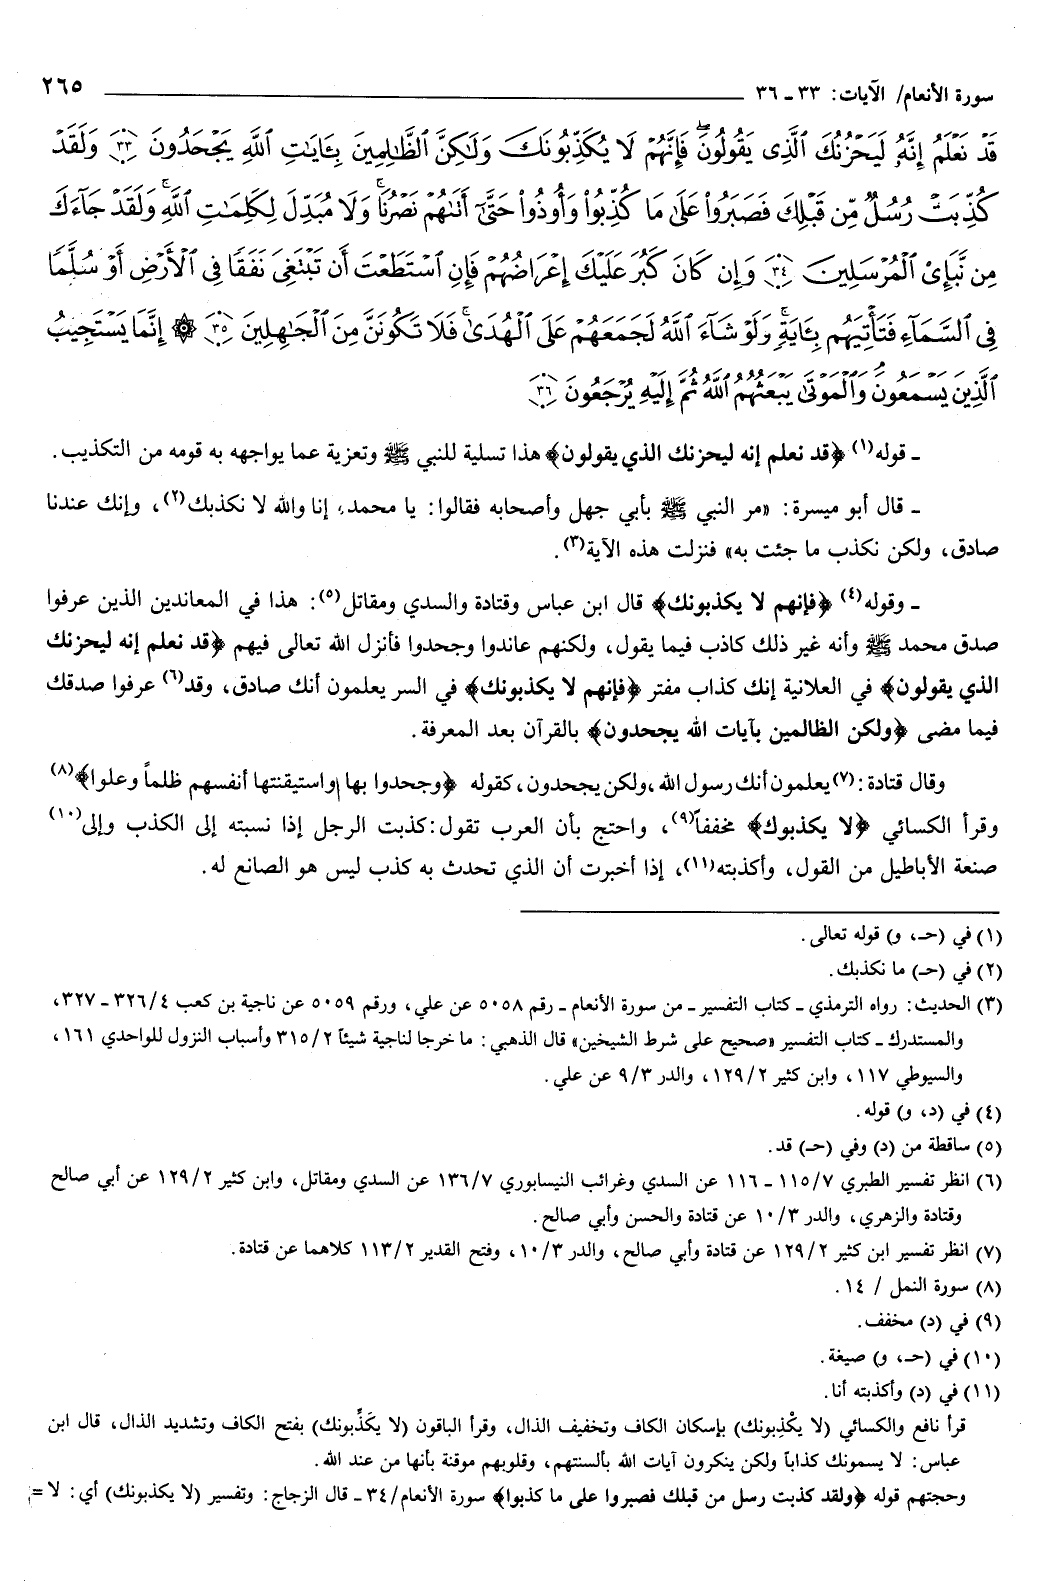 سورة الأنعام/ الآيات: ٣٣ ـ ٣٦ ٢٦٥
قَدْ نَعْلَمُ إِنَّهُۥ لَيَحْزُنُكَ ٱلَّذِى يَقُولُونَۖ فَإِنَّهُمْ لَا يُكَذِّبُونَكَ وَلَٰكِنَّ ٱلظَّٰلِمِينَ بِـَٔايَٰتِ ٱللَّهِ يَجْحَدُونَ ﴿٣٣﴾ وَلَقَدْ
كُذِّبَتْ رُسُلٌ مِّن قَبْلِكَ فَصَبَرُوا۟ عَلَىٰ مَا كُذِّبُوا۟ وَأُوذُوا۟ حَتَّىٰٓ أَتَىٰهُمْ نَصْرُنَاۚ وَلَا مُبَدِّلَ لِكَلِمَٰتِ ٱللَّهِۚ وَلَقَدْ جَآءَكَ
مِن نَّبَإِى۟ ٱلْمُرْسَلِينَ ﴿٣٤﴾ وَإِن كَانَ كَبُرَ عَلَيْكَ إِعْرَاضُهُمْ فَإِنِ ٱسْتَطَعْتَ أَن تَبْتَغِىَ نَفَقًا فِى ٱلْأَرْضِ أَوْ سُلَّمًا
فِى ٱلسَّمَآءِ فَتَأْتِيَهُم بِـَٔايَةٍۚ وَلَوْ شَآءَ ٱللَّهُ لَجَمَعَهُمْ عَلَى ٱلْهُدَىٰۚ فَلَا تَكُونَنَّ مِنَ ٱلْجَٰهِلِينَ ﴿٣٥﴾ ۞ إِنَّمَا يَسْتَجِيبُ
ٱلَّذِينَ يَسْمَعُونَۘ وَٱلْمَوْتَىٰ يَبْعَثُهُمُ ٱللَّهُ ثُمَّ إِلَيْهِ يُرْجَعُونَ ﴿٣٦﴾
ـ قوله(١) ﴿قد نعلم إنه ليحزنك الذي يقولون﴾ هذا تسلية للنبي ﷺ وتعزية عما يواجهه به قومه من التكذيب.
ـ قال أبو ميسرة: «مر النبي ﷺ بأبي جهل وأصحابه فقالوا: يا محمد، إنا والله لا نكذبك(٢)، وإنك عندنا
صادق، ولكن نكذب ما جئت به» فنزلت هذه الآية(٣).
ـ وقوله(٤) ﴿فإنهم لا يكذبونك﴾ قال ابن عباس وقتادة والسدي ومقاتل(٥): هذا في المعاندين الذين عرفوا
صدق محمد ﷺ وأنه غير ذلك كاذب فيما يقول، ولكنهم عاندوا وجحدوا فأنزل الله تعالى فيهم ﴿قد نعلم إنه ليحزنك
الذي يقولون﴾ في العلانية إنك كذاب مفتر ﴿فإنهم لا يكذبونك﴾ في السر يعلمون أنك صادق، وقد(٦) عرفوا صدقك
فيما مضى ﴿ولكن الظالمين بآيات الله يجحدون﴾ بالقرآن بعد المعرفة.
وقال قتادة:(٧) يعلمون أنك رسول الله، ولكن يجحدون، كقوله ﴿وجحدوا بها واستيقنتها أنفسهم ظلماً وعلوا﴾(٨)
وقرأ الكسائي ﴿لا يكذبوك﴾ مخففاً(٩)، واحتج بأن العرب تقول: كذبت الرجل إذا نسبته إلى الكذب وإلى(١٠)
صنعة الأباطيل من القول، وأكذبته(١١)، إذا أخبرت أن الذي تحدث به كذب ليس هو الصانع له.
(١) في (حـ، و) قوله تعالى.
(٢) في (حـ) ما نكذبك.
(٣) الحديث: رواه الترمذي ـ كتاب التفسير ـ من سورة الأنعام ـ رقم ٥٠٥٨ عن علي، ورقم ٥٠٥٩ عن ناجية بن كعب ٣٢٦/٤ ـ ٣٢٧،
والمستدرك ـ كتاب التفسير «صحيح على شرط الشيخين» قال الذهبي: ما خرجا لناجية شيئاً ٣١٥/٢ وأسباب النزول للواحدي ١٦١،
والسيوطي ١١٧، وابن كثير ١٢٩/٢، والدر ٩/٣ عن علي.
(٤) في (د، و) قوله.
(٥) ساقطة من (د) وفي (حـ) قد.
(٦) انظر تفسير الطبري ١١٥/٧ ـ ١١٦ عن السدي وغرائب النيسابوري ١٣٦/٧ عن السدي ومقاتل، وابن كثير ١٢٩/٢ عن أبي صالح
وقتادة والزهري، والدر ١٠/٣ عن قتادة والحسن وأبي صالح.
(٧) انظر تفسير ابن كثير ١٢٩/٢ عن قتادة وأبي صالح، والدر ١٠/٣، وفتح القدير ١١٣/٢ كلاهما عن قتادة.
(٨) سورة النمل / ١٤.
(٩) في (د) مخفف.
(١٠) في (حـ، و) صيغة.
(١١) في (د) وأكذبته أنا.
قرأ نافع والكسائي (لا يكْذِبونك) بإسكان الكاف وتخفيف الذال، وقرأ الباقون (لا يكَذِّبونك) بفتح الكاف وتشديد الذال، قال ابن
عباس: لا يسمونك كذاباً ولكن ينكرون آيات الله بألسنتهم، وقلوبهم موقنة بأنها من عند الله.
وحجتهم قوله ﴿ولقد كذبت رسل من قبلك فصبروا على ما كذبوا﴾ سورة الأنعام/٣٤ ـ قال الزجاج: وتفسير (لا يكذبونك) أي: لا =